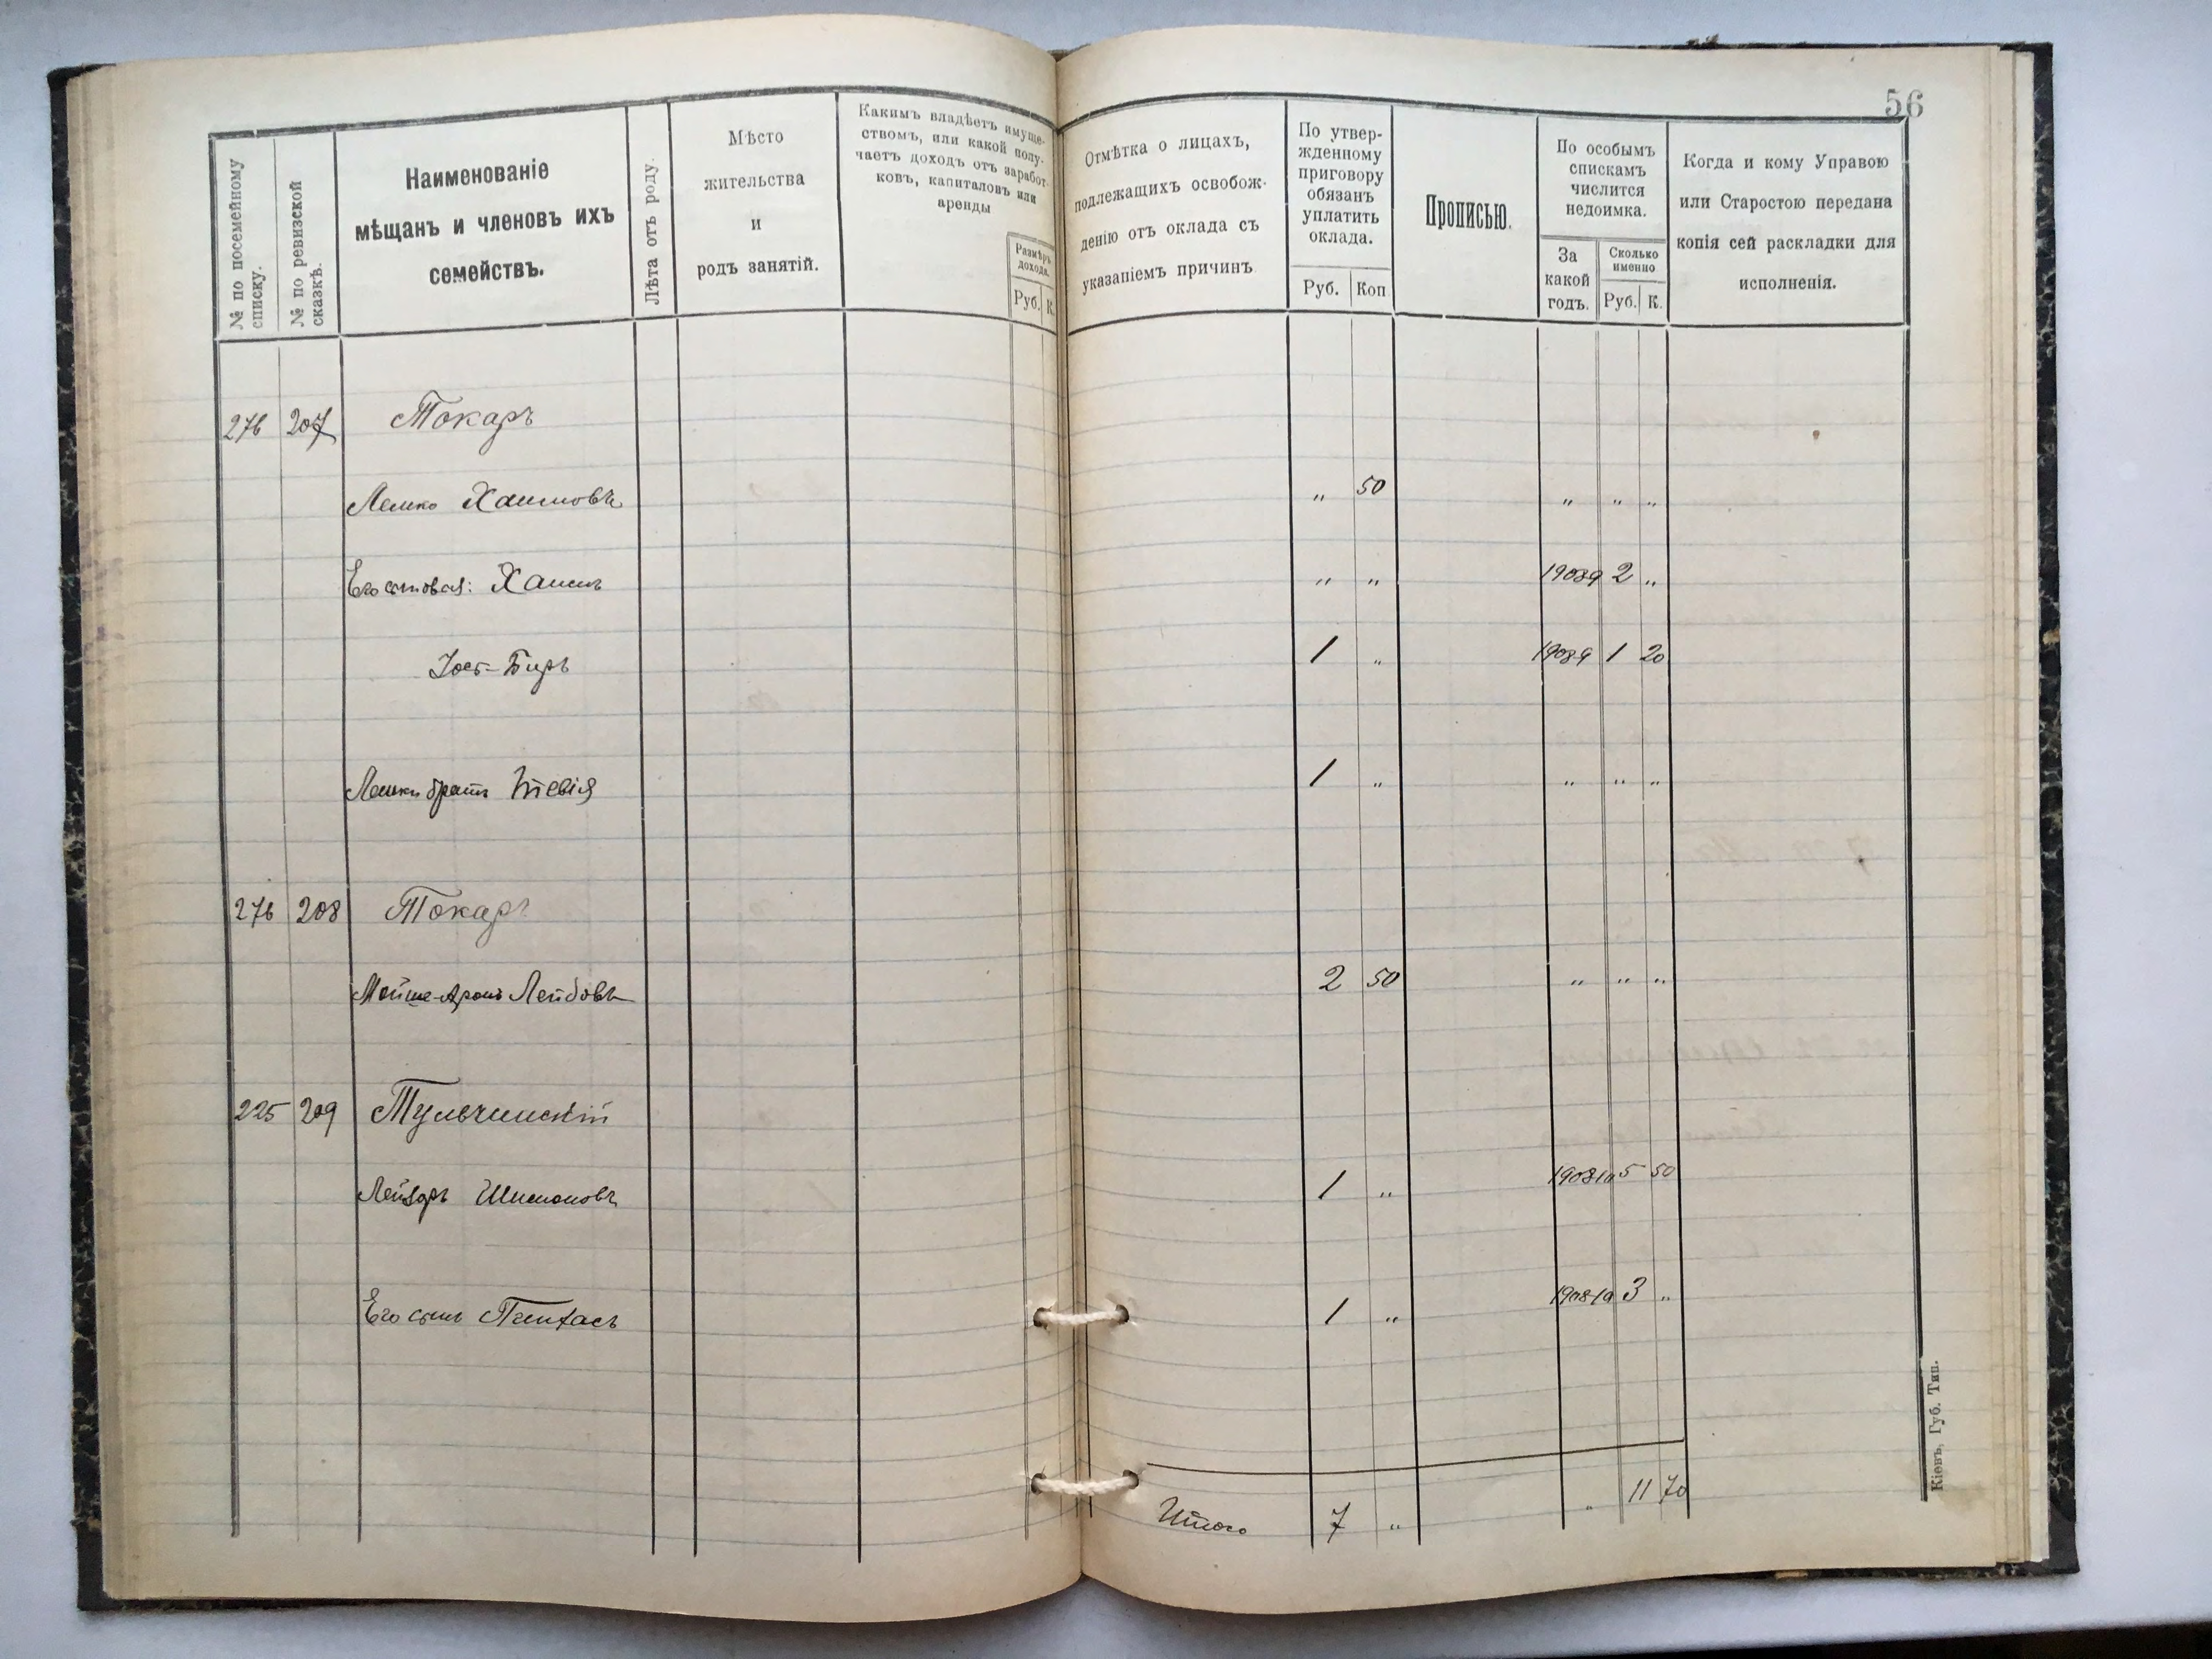 56
№ по посемейному
списку.
№ по ревизской
сказкѣ.
Наименованіе
мѣщанъ и членовъ ихъ
семействъ.
Лѣта отъ роду.
Мѣсто
жительства
и
родъ занятій.
Какимъ владѣетъ имуще-
ствомъ, или какой полу-
чаетъ доходъ отъ заработ-
ковъ, капиталовъ или
аренды
Размѣръ
дохода.
Руб. К.
Отмѣтка о лицахъ,
подлежащихъ освобож-
денію отъ оклада съ
указаніемъ причинъ
По утвер-
жденному
приговору
обязанъ
уплатить
оклада.
Руб. Коп
Прописью.
По особымъ
спискамъ
числится
недоимка.
За
какой
годъ.
Сколько
именно
Руб. К.
Когда и кому Управою
или Старостою передана
копія сей раскладки для
исполненія.
276 207 Токаръ
Лемко Хаимовъ „ 50 „ „ „
Его сыновья: Хаимъ „ „ 19089 2 „
Іос-Беръ 1 „ 1908-9 1 20
братъ Тевія 1 „ „ „ „
276 208 Токаръ
Мойше-Аронъ Лейбовъ 2 50 „ „ „
225 209 Тульчинскій
Лейзоръ Шимоновъ 1 „ 190810 5 50
Его сынъ Пинхасъ 1 „ 1908-10 3 „
Итого 7 „ „ 11 70
Кіевъ, Губ. Тип.